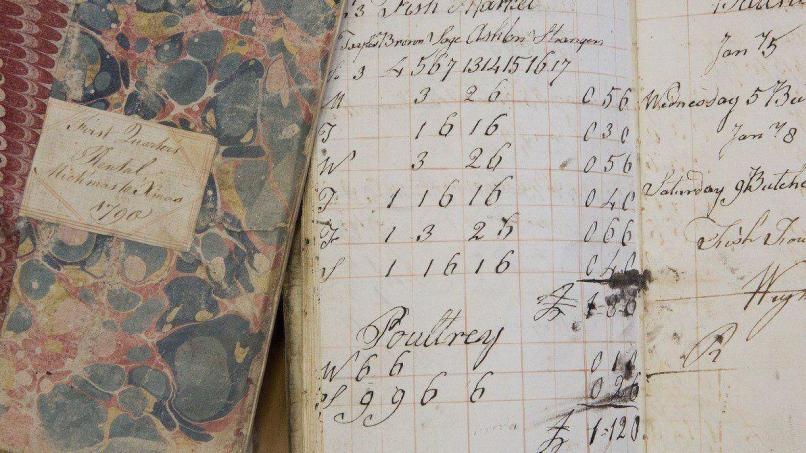 First Quarters
Rental
Michmas to Xmas
1790
Fish Market
Brown Sage Ashton Strangers
3 4 5 6 7 13 14 15 16 17
M 3 2 6 0 5 6
T 1 6 1 6 0 3 0
W 3 2 6 0 5 6
T 1 1 6 1 6 0 4 0
F 1 3 2 6 0 6 6
S 1 1 6 1 6 0 4 0
£ 1 8 0
Poultrey
W 6 6 0 1 0
S 9 9 6 6 0 2 6
£ 1 12 0
Jan 5
Wednesday 5
Jan 8
Saturday 9
Fish